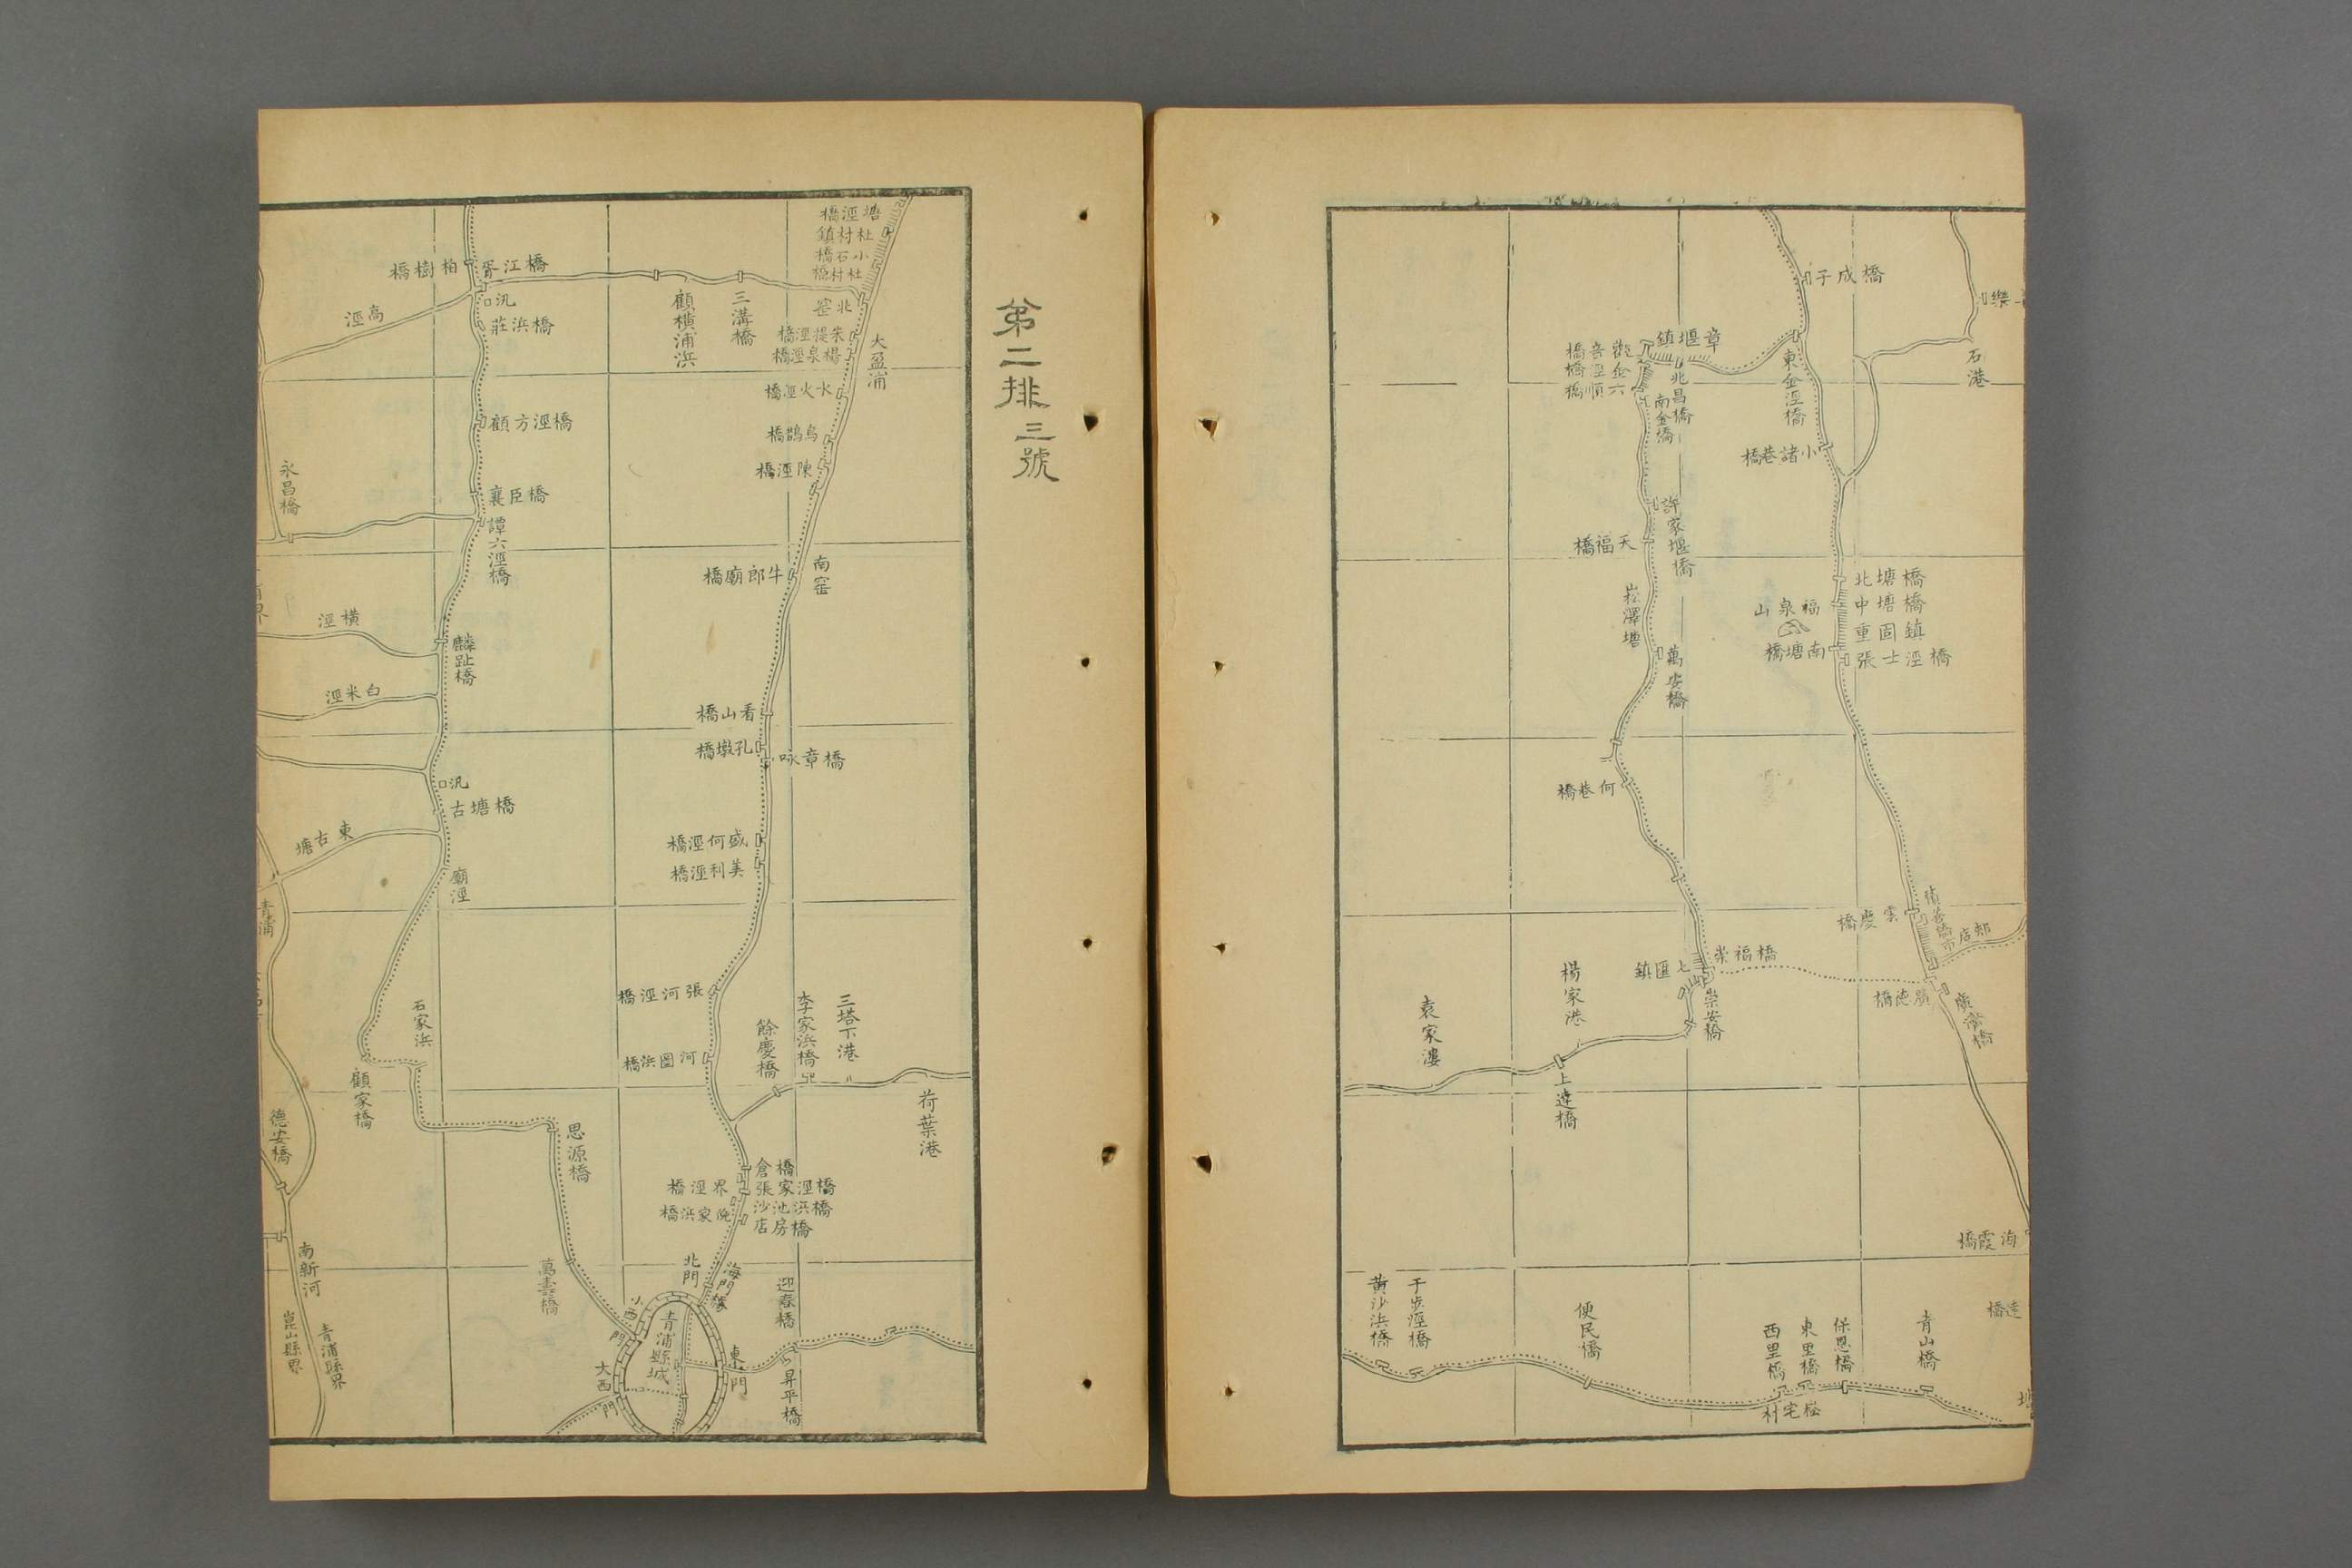 橋成子
樂
石港
章堰鎮
東金涇橋
兆昌橋
南金橋
觀音橋
金涇橋
六順橋
小諸巷橋
許家堰橋
天福橋
崧澤塘
萬安橋
北塘橋
中塘橋
重固鎮
張士涇橋
福泉山
南塘橋
何巷橋
雲慶橋
郟店市
崇福橋
七匯鎮
崇安橋
廣德橋
楊家港
袁家漊
上達橋
海霞橋
達橋
青山橋
保恩橋
東里橋
西里橋
崧宅村
便民橋
千步涇橋
黃沙浜橋
第二排三號
塘涇橋
杜村鎮
小石橋
杜村橋
北窰
朱提涇橋
楊泉涇橋
大盈浦
水火涇橋
烏鵲橋
陳涇橋
三溝橋
顧橫浦浜
南窰
牛郎廟橋
看山橋
孔墩橋
咏章橋
盛何涇橋
美利涇橋
張河涇橋
河圖浜橋
三塔下港
李家浜橋
餘慶橋
荷葉港
倉橋
張家涇橋
沙池浜橋
店房橋
界涇橋
北門
迎春橋
昇平橋
東門
青浦縣城
小西門
大西門
胥江橋
柏樹橋
汛
莊浜橋
高涇
顧方涇橋
襄臣橋
譚六涇橋
永昌橋
橫涇
麟趾橋
白米涇
汛
古塘橋
東古塘
廟涇
青浦
石家浜
顧家橋
思源橋
萬壽橋
德安橋
南新河
青浦縣界
崑山縣界